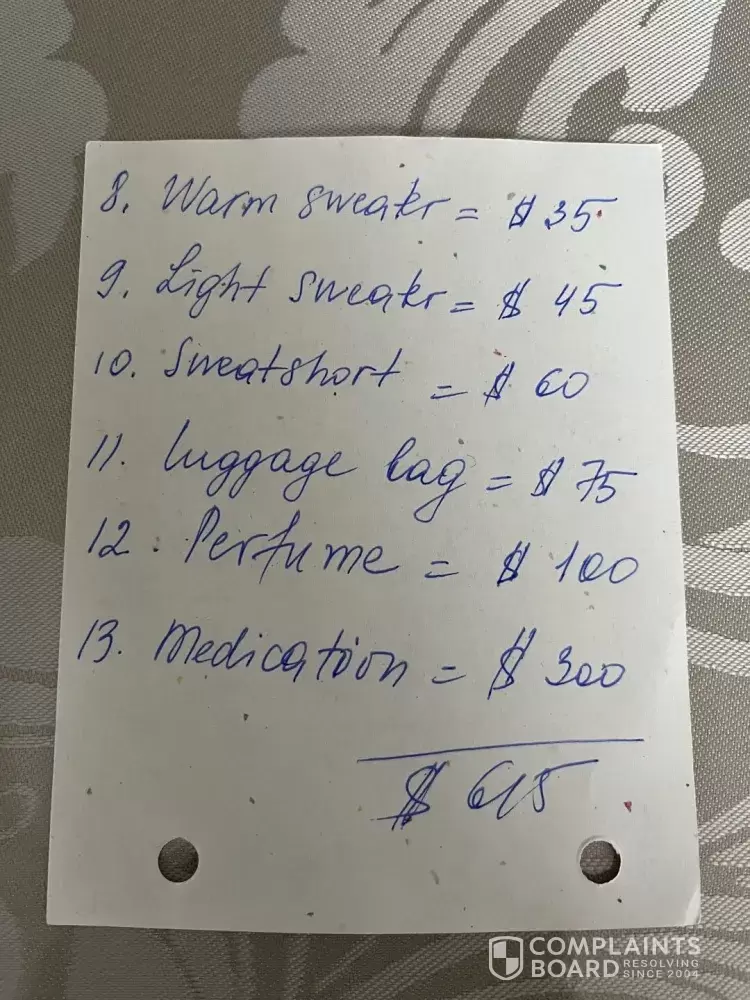 8. Warm sweatr = $35
9. Light sweatr = $ 45
10. Sweatshort = $ 60
11. Luggage bag = $ 75
12. Perfume = $ 100
13. Medication = $ 300
$ 615
COMPLAINTS
BOARD RESOLVING
SINCE 2004